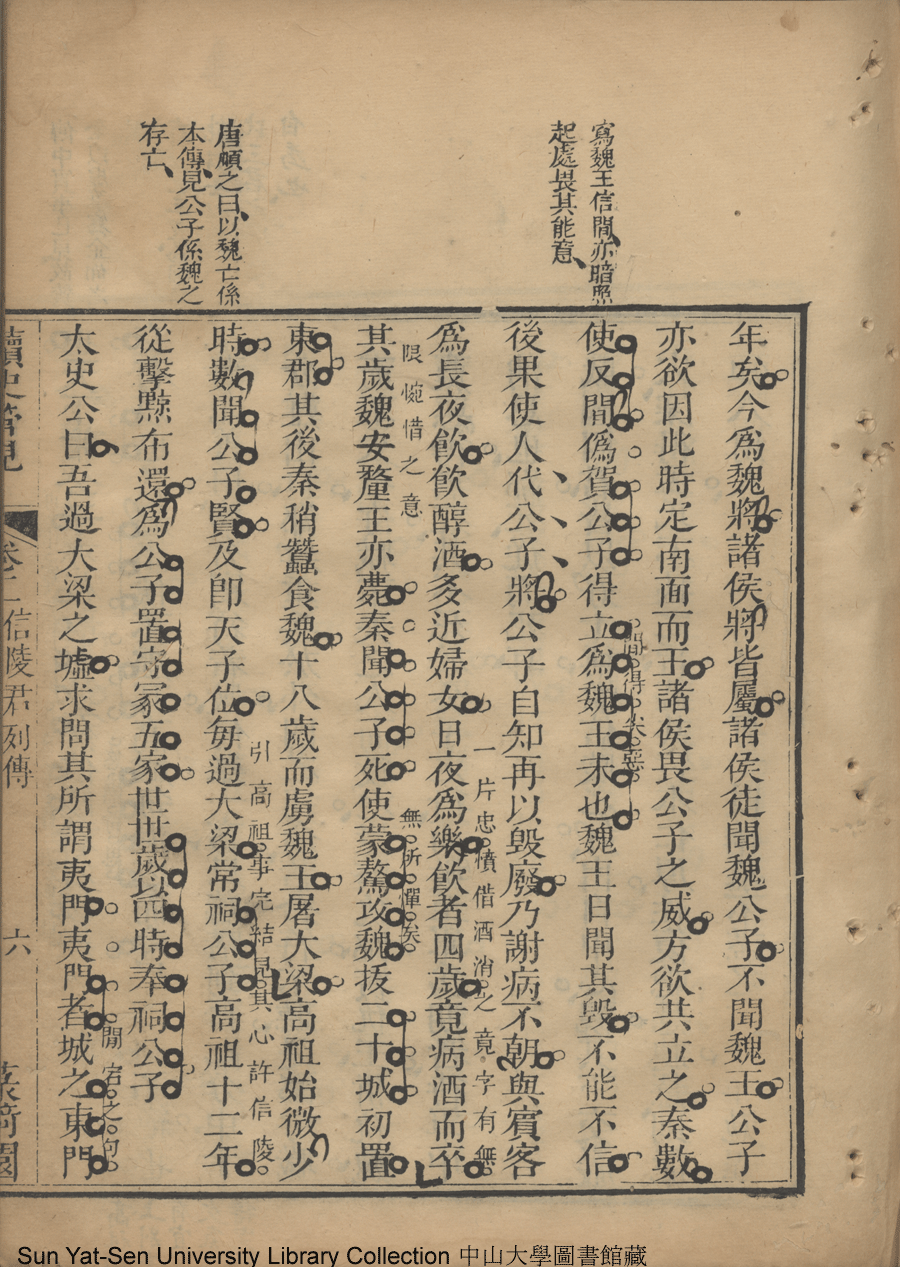 寫魏王信間亦暗照
起處畏其能意
唐順之曰以魏亡係
本傳見公子係魏之
存亡
年矣今爲魏將諸侯將皆屬諸侯徒聞魏公子不聞魏王公子
亦欲因此時定南面而王諸侯畏公子之威方欲共立之秦數
間得矣惡
使反間僞賀公子得立爲魏王未也魏王日聞其毀不能不信
後果使人代公子將公子自知再以毀廢乃謝病不朝與賓客
一片忠憤借酒消之竟字有無
限惋惜之意
爲長夜飮飮醇酒多近婦女日夜爲樂飮者四歲竟病酒而卒
無所憚矣
其歲魏安釐王亦薨秦聞公子死使蒙驁攻魏拔二十城初置
東郡其後秦稍蠶食魏十八歲而虜魏王屠大梁高祖始微少
引高祖事完結見其心許信陵
時數聞公子賢及卽天子位每過大梁常祠公子高祖十二年
從擊黥布還爲公子置守冢五家世世歲以四時奉祠公子
閒宕之句
太史公曰吾過大梁之墟求問其所謂夷門夷門者城之東門
讀史管見
卷二
信陵君列傳
六
Sun Yat-Sen University Library Collection 中山大學圖書館藏